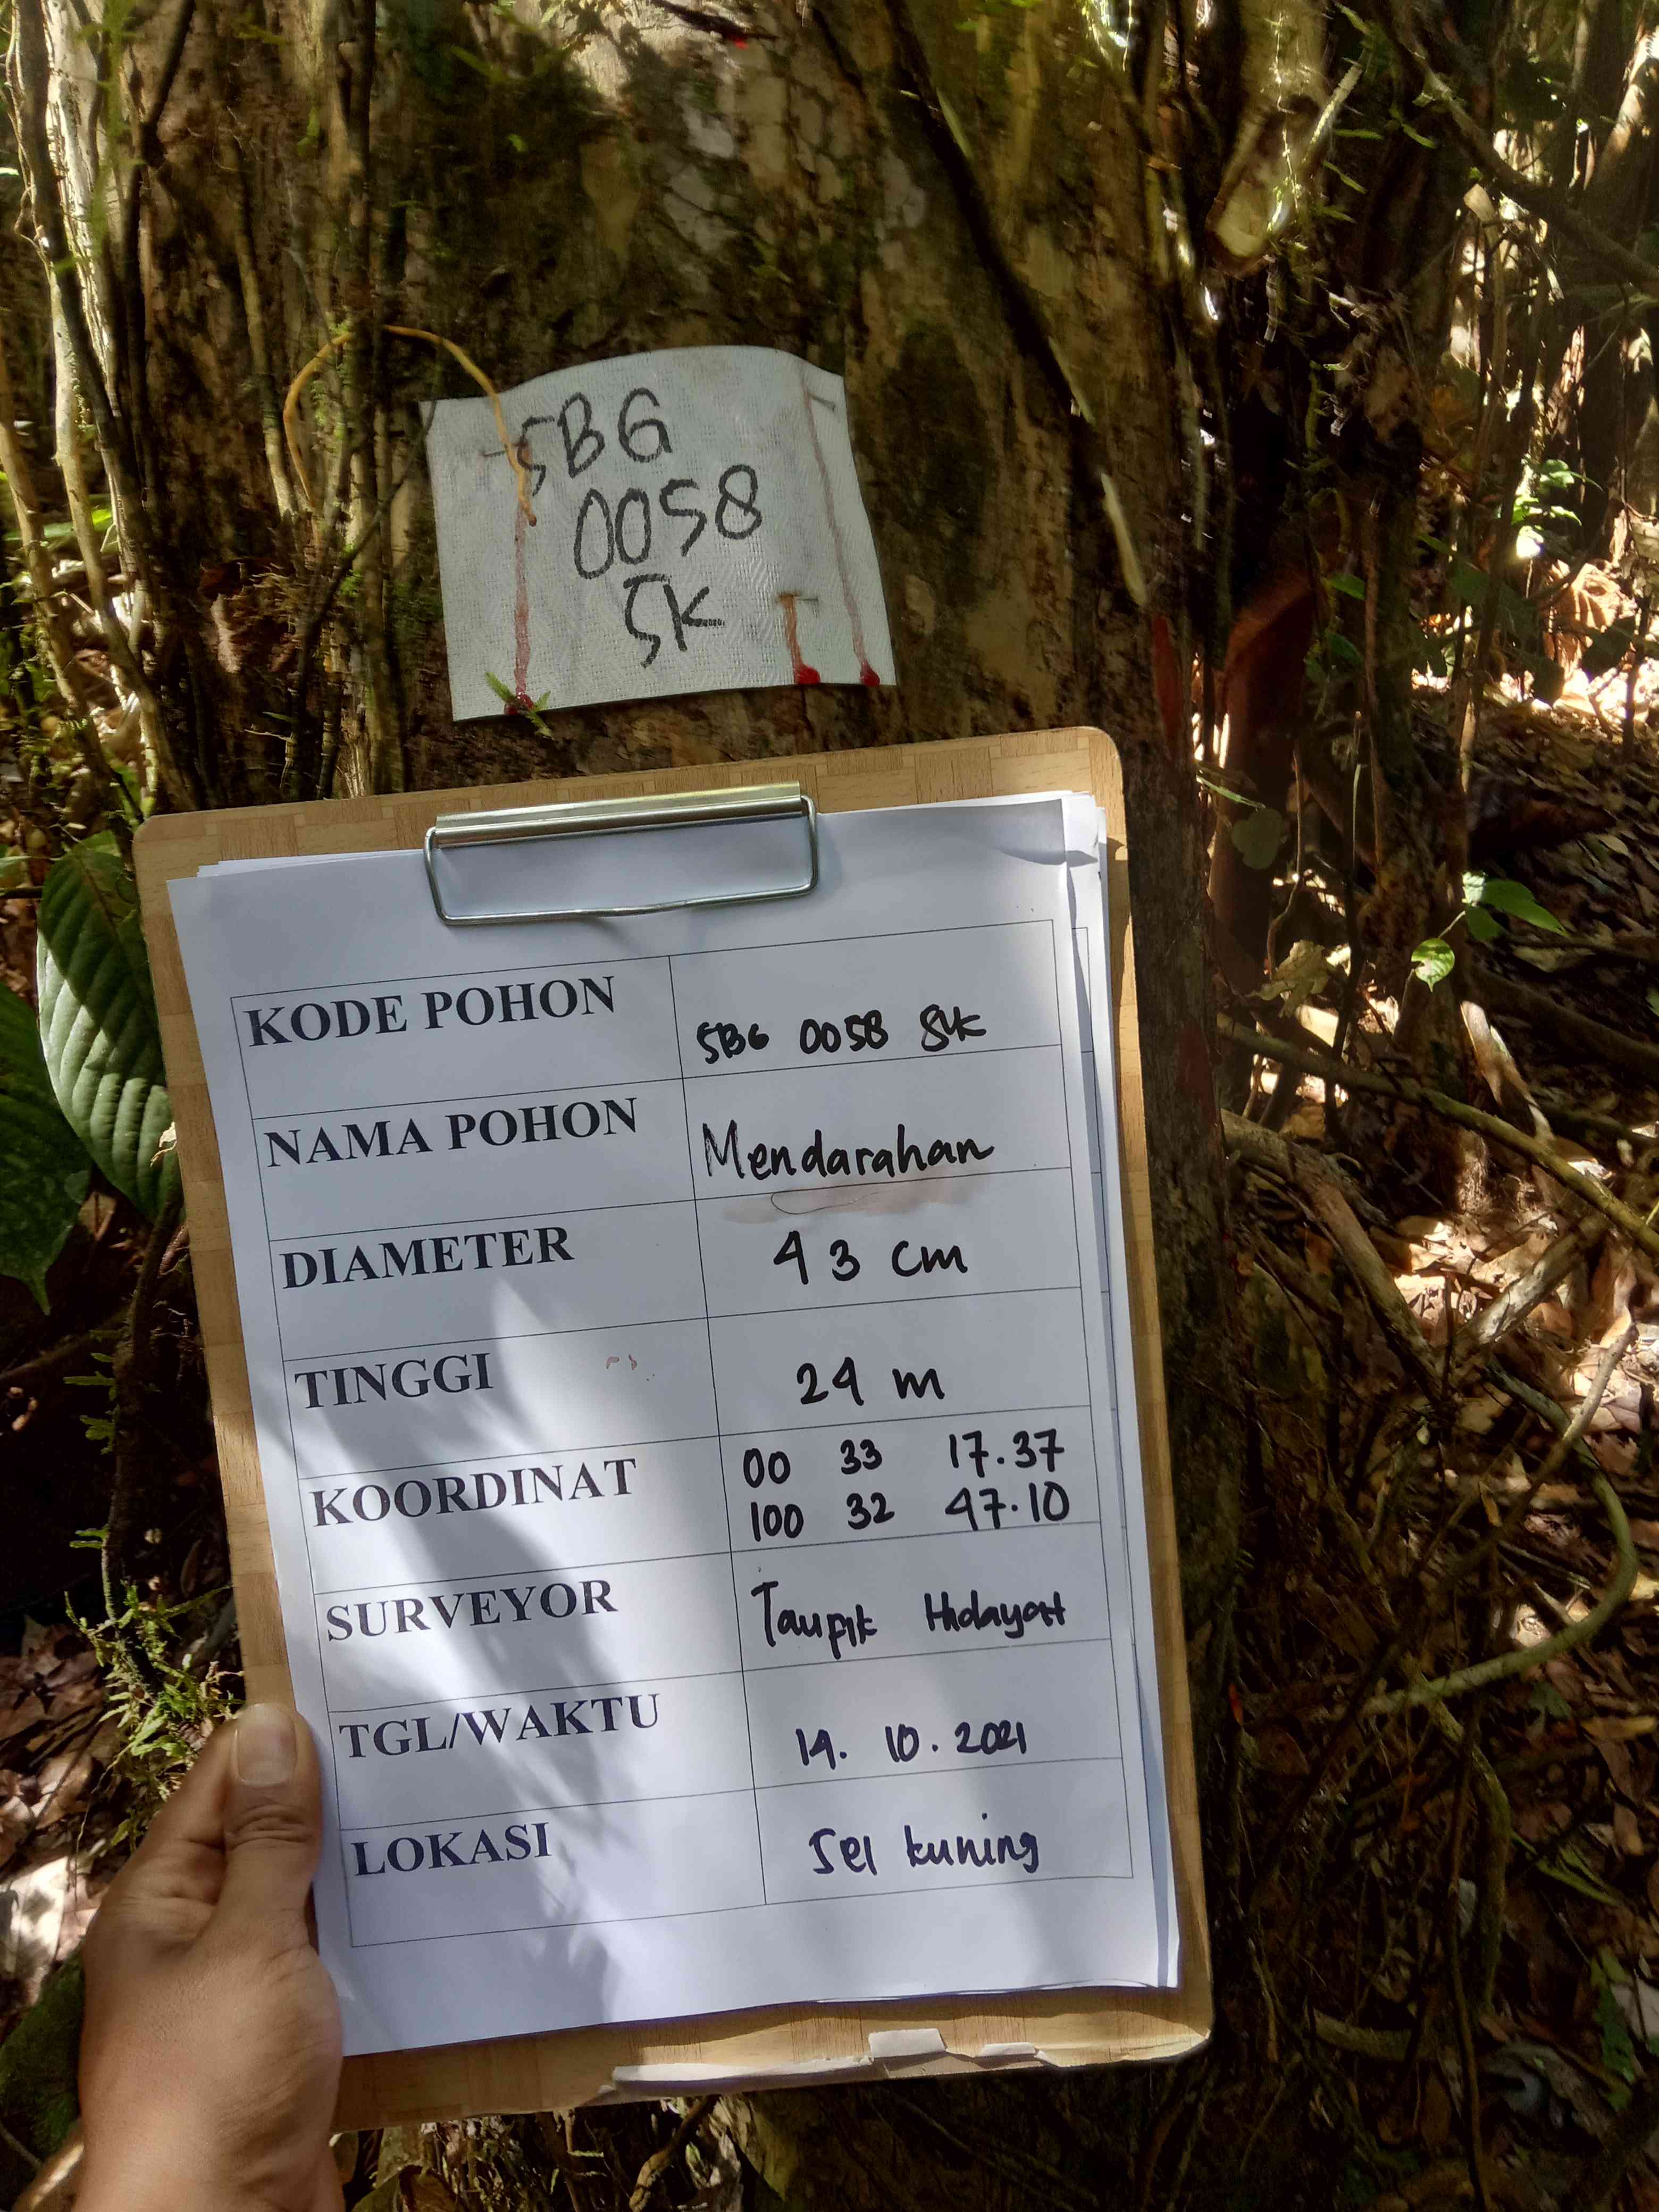 SBG
0058
SK
KODE POHON SBG 0058 SK
NAMA POHON Mendarahan
DIAMETER 43 cm
TINGGI 24 m
KOORDINAT 00 33 17.37
100 32 47.10
SURVEYOR Taupik Hidayat
TGL/WAKTU 14. 10. 2021
LOKASI Sei kuning